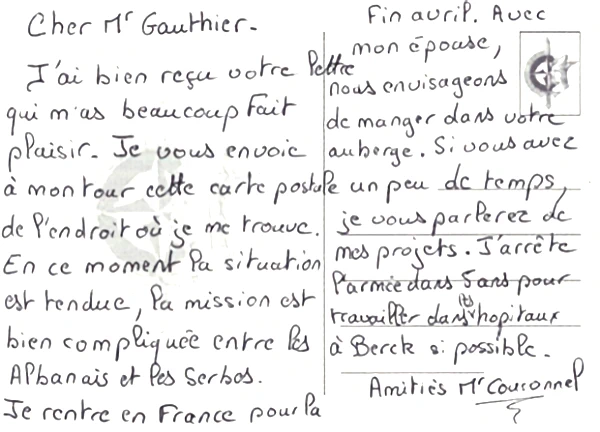 Cher Mr Gauthier.
J'ai bien reçu votre lettre
qui m'as beaucoup fait
plaisir. Je vous envoie
à mon tour cette carte postale
de l'endroit où je me trouve.
En ce moment la situation
est tendue, la mission est
bien compliquée entre les
Albanais et les Serbos.
Je rentre en France pour la
Fin avril. Avec
mon épouse,
nous envisageons
de manger dans votre
auberge. Si vous avez
un peu de temps,
je vous parlerez de
mes projets. J'arrête
l'armée dans 5 ans pour
travailler dans les hopitaux
à Berck si possible.
Amitiés Mr Couronnel